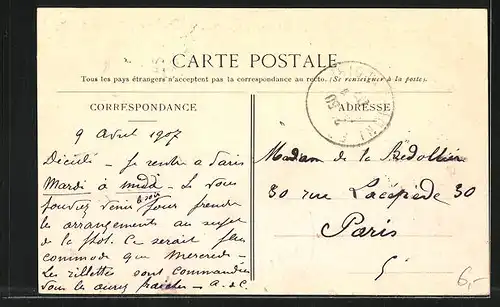 CARTE POSTALE
Tous les pays étrangers n'acceptent pas la correspondance au recto. (Se renseigner à la poste).
CORRESPONDANCE
ADRESSE
9 Avril 1907
Décidé - Je rentre a Paris
Mardi à midi - Si vous
pouvez venir ce soir pour prendre
les arrangements au sujet
de la Ce serait plus
commode que Mercredi -
Les rillettes sont commandées
Vous les aurez fraiches - a. c.
Madame de la Bédollière
30 rue Lacépède 30
Paris
6,-